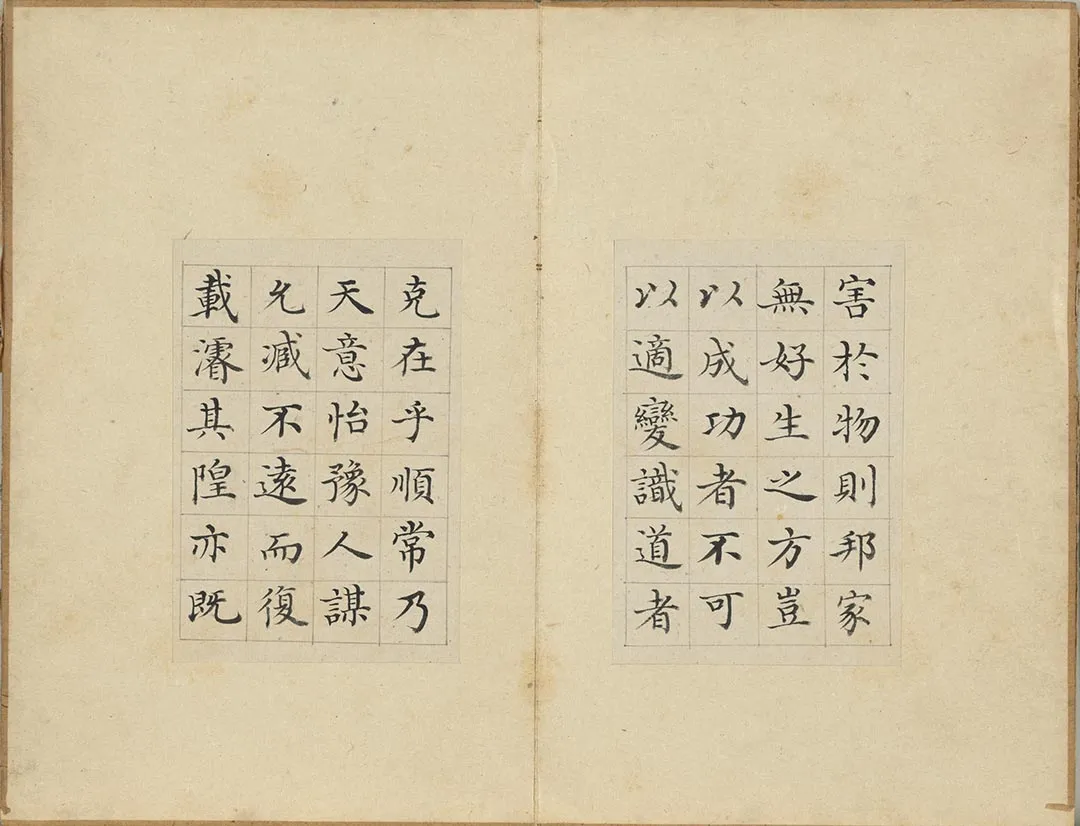 害於物則邦家
無好生之方豈
以成功者不可
以適變識道者
克在乎順常乃
天意怡豫人謀
允臧不遠而復
載濬其隍亦既